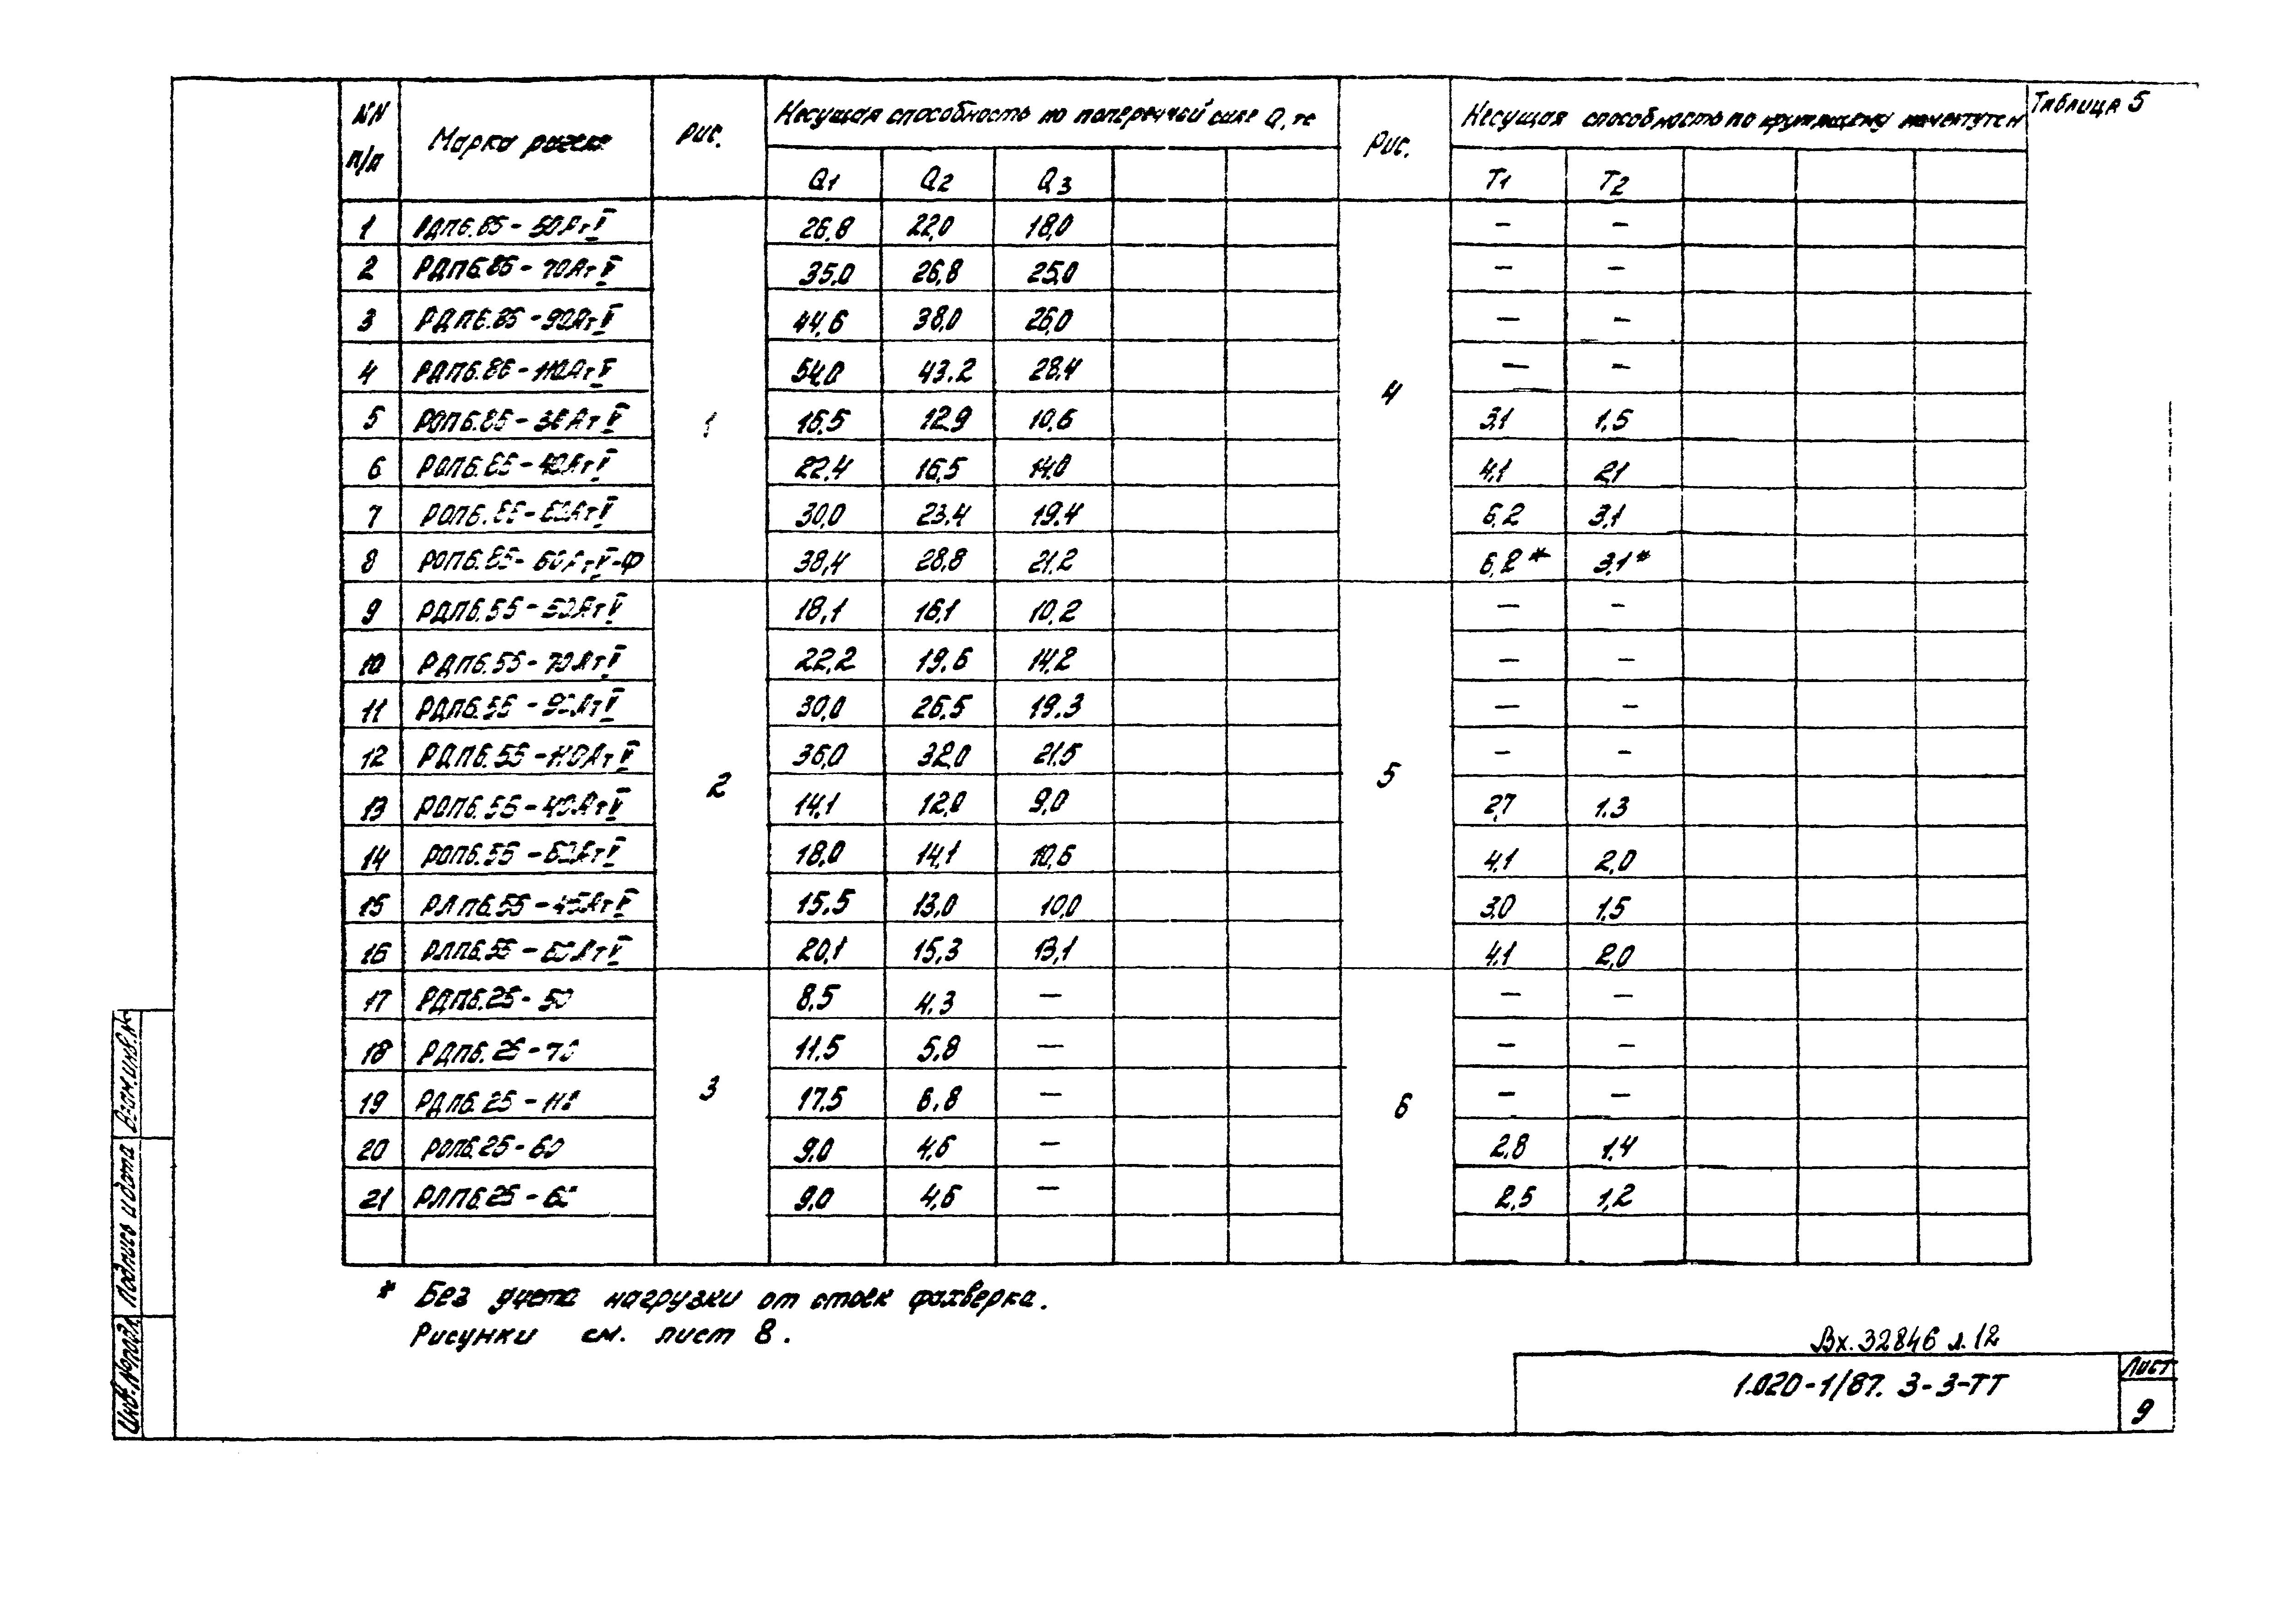 Таблица 5
NN п/п Марка ригеля Рис. Несущая способность по поперечной силе Q, тс Рис. Несущая способность по крутящему моменту тс м
Q1 Q2 Q3 T1 T2
1 РДП6.85-50АтV 26,8 22,0 18,0 — —
2 РДП6.86-70АтV 35,0 26,8 25,0 — —
3 РДП6.85-90АтV 44,6 38,0 26,0 — —
4 РДП6.86-110АтV 54,0 43.2 28,4 — —
5 РОП6.85-30АтV 16,5 12,9 10,6 3,1 1,5
6 РОП6.85-40АтV 22,4 16,5 14,0 4,1 2,1
7 РОП6.86-60АтV 30,0 23.4 19.4 6,2 3,1
8 РОП6.85-60АтV-Ф 38,4 28,8 21,2 6,2* 3,1*
1 4
9 РДП6.55-50АтV 18,1 16,1 10,2 — —
10 РДП6.56-70АтV 22,2 19.6 14,2 — —
11 РДП6.56-90АтV 30,0 26,5 19.3 — —
12 РДП6.56-110АтV 36,0 32,0 21,5 — —
13 РОП6.56-40АтV 14,1 12,0 9,0 2,7 1.3
14 РОП6.56-60АтV 18,0 14,1 10,6 4,1 2,0
15 РЛП6.56-45АтV 15.5 13,0 10,0 3,0 1,5
16 РЛП6.56-60АтV 20,1 15,3 13,1 4,1 2,0
2 5
17 РДП6.25-50 8,5 4.3 — — —
18 РДП6.26-70 11,5 5,8 — — —
19 РДП6.25-110 17,5 6,8 — — —
20 РОП6.25-60 9,0 4,6 — 2,8 1,4
21 РЛП6.25-60 9,0 4,6 — 2,5 1,2
3 6
* Без учета нагрузки от стоек фахверка.
Рисунки см. лист 8.
Вх. 32846 л. 12
1.020-1/87. 3-3-ТТ
Лист
9
Инв. №подл. Подпись и дата Взам.инв.№